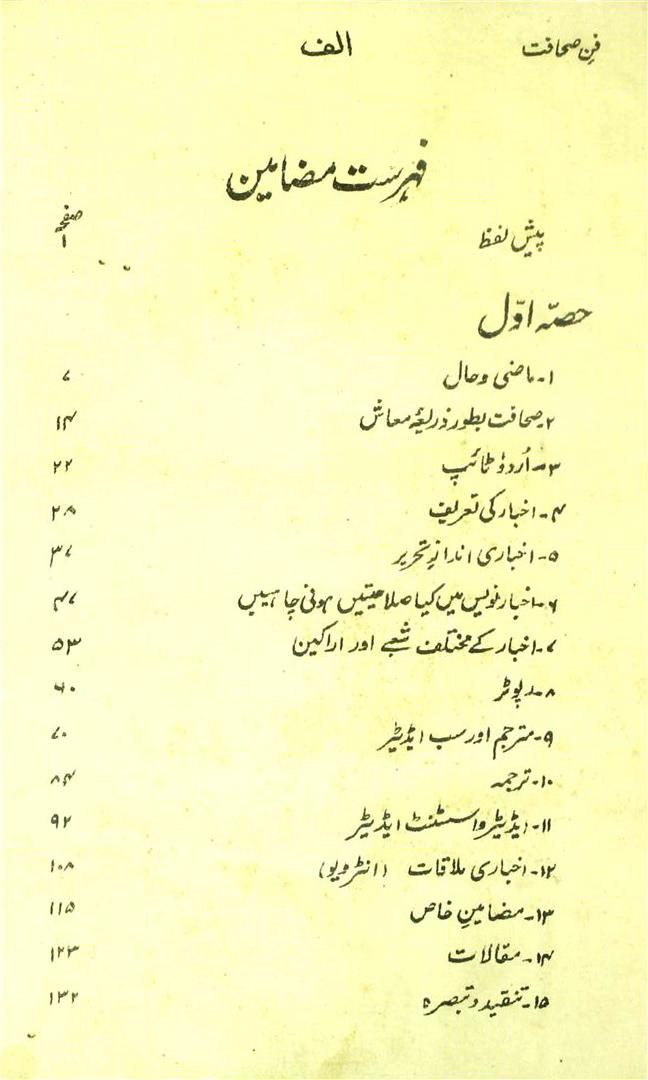 فنِ صحافت الف
فہرست مضامین
صفحہ
پیش لفظ ۱
حصّہ اوّل
۱- ماضی و حال ۷
۲- صحافت بطور ذریعۂ معاش ۱۴
۳- اُردو ٹائپ ۲۲
۴- اخبار کی تعریف ۲۸
۵- اخباری اندازِ تحریر ۳۷
۶- اخبار نویس میں کیا صلاحیتیں ہونی چاہییں ۴۷
۷- اخبار کے مختلف شعبے اور اراکین ۵۳
۸- رپوٹر ۶۰
۹- مترجم اور سب ایڈیٹر ۷۰
۱۰- ترجمہ ۸۴
۱۱- ایڈیٹر و اسسٹنٹ ایڈیٹر ۹۲
۱۲- اخباری ملاقات (انٹرویو) ۱۰۸
۱۳- مضامینِ خاص ۱۱۵
۱۴- مقالات ۱۲۳
۱۵- تنقید و تبصرہ ۱۳۲